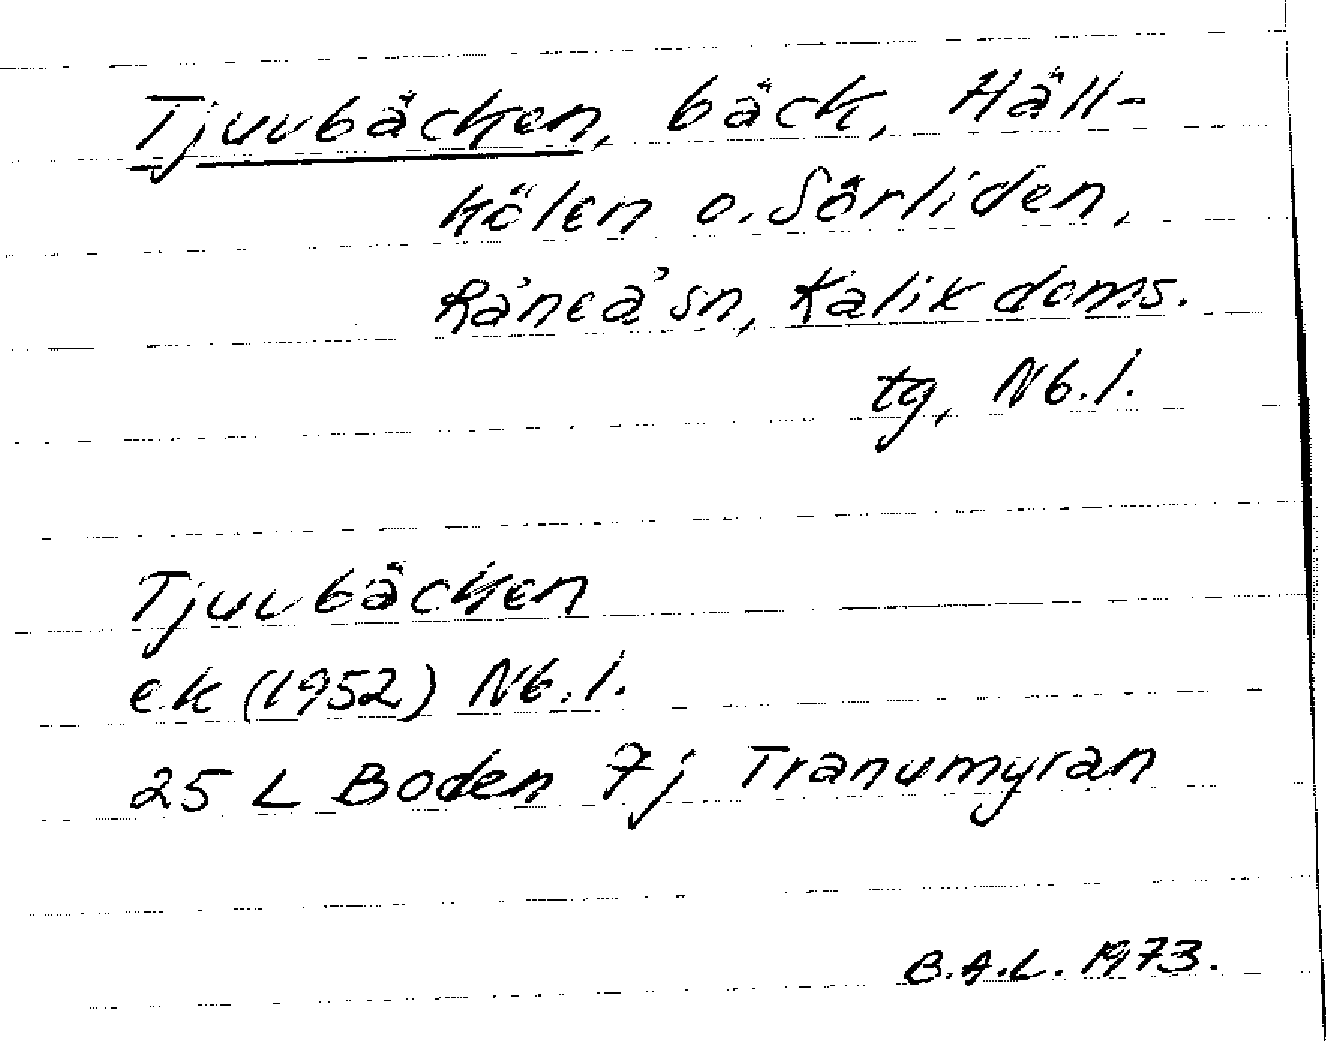 Tjuvbäcken, bäck, Häll-
kölen o. Sörliden,
Råneå sn, Kalix doms.
tg, Nb.l.
Tjuvbäcken
ek (1952) Nb.l.
25 L Boden 7j Tranumyran
B.A.L. 1973.